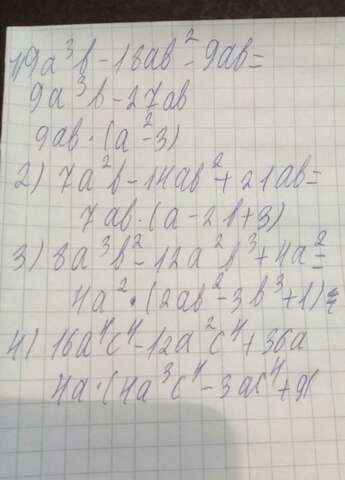 1) 9a³b - 18ab² - 9ab =
9a³b - 27ab
9ab · (a² - 3)
2) 7a²b - 14ab² + 21ab =
7ab · (a - 2b + 3)
3) 8a³b² - 12a²b³ + 4a² =
4a² · (2ab² - 3b³ + 1) =
4) 16a⁴c⁴ - 12a²c⁴ + 36a
4a · (4a³c⁴ - 3ac⁴ + 9